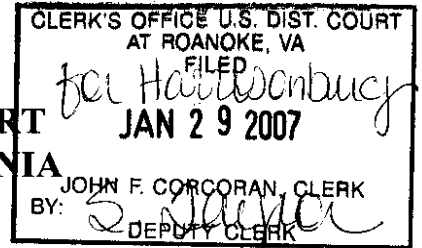 CLERK'S OFFICE U.S. DIST. COURT
AT ROANOKE, VA
FILED
for Harrisonburg
RT
JAN 29 2007
NIA
JOHN F. CORCORAN, CLERK
BY:
DEPUTY CLERK